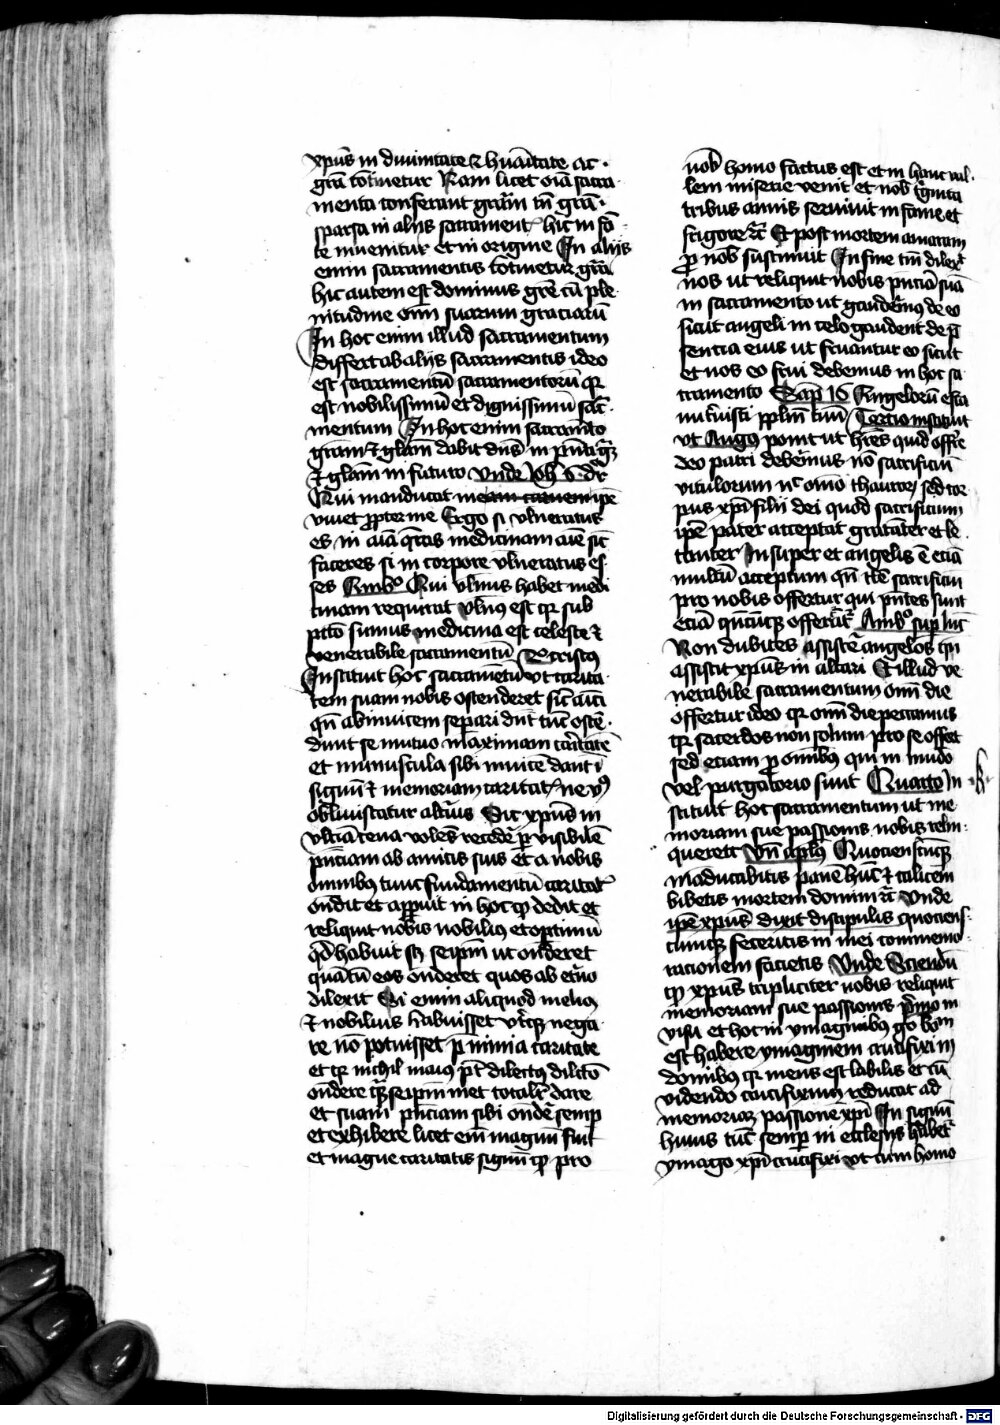 xpūs in diuinitate & huāitate ac
grā cōtinetur Nam licet oīa sacra
menta conferant grām tn̄ grā
sparsa in alijs sacramentꝭ hic in fō
te inuenitur et in origine In alijs
enim sacramentis cōtinetur grā
hic autem est dominus grē cū ple
nitudine om̄ suarum graciarū
In hoc enim illud sacramentum
differt ab alijs sacramentis ideo
est sacramentū sacramentorū qꝛ
est nobilissimū et dignissimū sac̄
mentum In hoc enim sacramēto
grām et glām dabit dn̄s in pn̄ti grā
et glām in futuro vnde Joh 6 dr̄
Qui manducat meam carnem ip̄e
viuet ꝓpter me Ergo si vlneratus
es in aīa q̄ras medicinam aīe sic̄
faceres si in corpore vlneratus es
ses Ambꝰ Qui vlnus habet medi
cinam requirat vlnꝰ est qꝛ sub
pctō sumus medicina est celeste et
venerabile sacramentū 2ꝰ cristꝰ
Instituit hoc sacramētū vt carita
tem suam nobis ostenderet sic̄ amici
qn̄ abinuicem sepærari dn̄t tūc ostē
dunt se mutuo maximam caritatē
et munuscula sibi inuicē dant ī
signū et memoriam caritatꝭ ne vꝰ
obliuiscatur altiꝰ Sic xpūs in
vltīa cena volēs recedē ꝑ visibilē
pn̄ciam ab amicis suis et a nobis
omnibꝰ tunc fundamentū caritatꝭ
ondit et apꝑuit in hoc ꝙ dedit et
reliquit nobis nobiliꝰ et optimū
qd̄ habuit scꝫ seipm̄ ut onderet
quātū eos onderet quos ab et̄no
dilexit Si enim aliquod meliꝰ
et nobilius habuisset vtiqꝫ nega
re nō potuisset ꝑ nimia caritate
et qꝛ nichil maiꝰ pt̄ dilectꝰ dilcō
ondere qᷓ seipm̄ met totalꝭ dare
et suam pn̄ciam sibi ondē semꝑ
et exhibere licet em̄ magnū fuit
et magne caritatis signū ꝙ pro
nob̄ homo factus est et in hanc val
lem miserie venit et nob̄ tginta
tribus annis seruiuit in fame et
frigore ⁊c̄ Et post mortem amaram
ꝑ nob̄ sustinuit In fine tn̄ dilexit
nos ut reliquit nobis pn̄ciā suā
in sacramento ut gauderemꝰ de eo
sicut angeli in celo gaudent de p̄
sentia eius ut fruantur eo sicut
et nos eo frui debemus in hoc sa
cramento Sap̄ 16 Angelorū esca
nut̄uisti pplm̄ tuū Tertio instituit
vt Augꝰ ponit ut h̄res quid offr̄e
deo patri deberemus nō sacrificiū
vitulorum nc̄ om̄o thaurorꝫ sed cor
pus xpī filii dei quod sacrificium
ip̄e pater acceptat gratanter et le
tanter Insuper et angelis ē etiā
multū acceptum qn̄ tale sacrificiū
pro nobis offertur qui pn̄tes sunt
etiā qn̄cunqꝫ offerat̄ Ambꝰ suꝑ luc̄
Non dubites assistē angelos qn̄
assistit xpūs in altari Et illud ve
nerabile sacramentum om̄i die
offertur ideo qꝛ om̄i die peccamus
qꝛ sacerdos non solum pro se offert
sed etiam ꝑ omībus qui in mūdo
vel purgatorio sunt Quarto In
stituit hoc sacramentum ut me
moriam sue passionis nobis relin
queret Vn̄ aplꝰ Quotienscūqꝫ
māducabitis panē hūc et calicem
bibetis mortem domini ⁊c̄ Vnde
ip̄e xpūs dixit discipulis quotiens
cunqꝫ feceritis in mei commemo
rationem facietis Vnde Sciendū
ꝙ xpūs tripliciter nobis reliquit
memoriam sue passionis p̄mo in
visu et hoc in ymaginibꝰ gͦ bom̄
est habere ymaginem crucifixi in
domibus qꝛ mens est labilis et cū
videndo crucifixum reducat ad
memoriaꝫ passionē xpī In signū
huius tūc semꝑ in ecclesijs habet̄
ymago xpī crucifixi vt cum homo
Digitalisierung gefördert durch die Deutsche Forschungsgemeinschaft - DFG